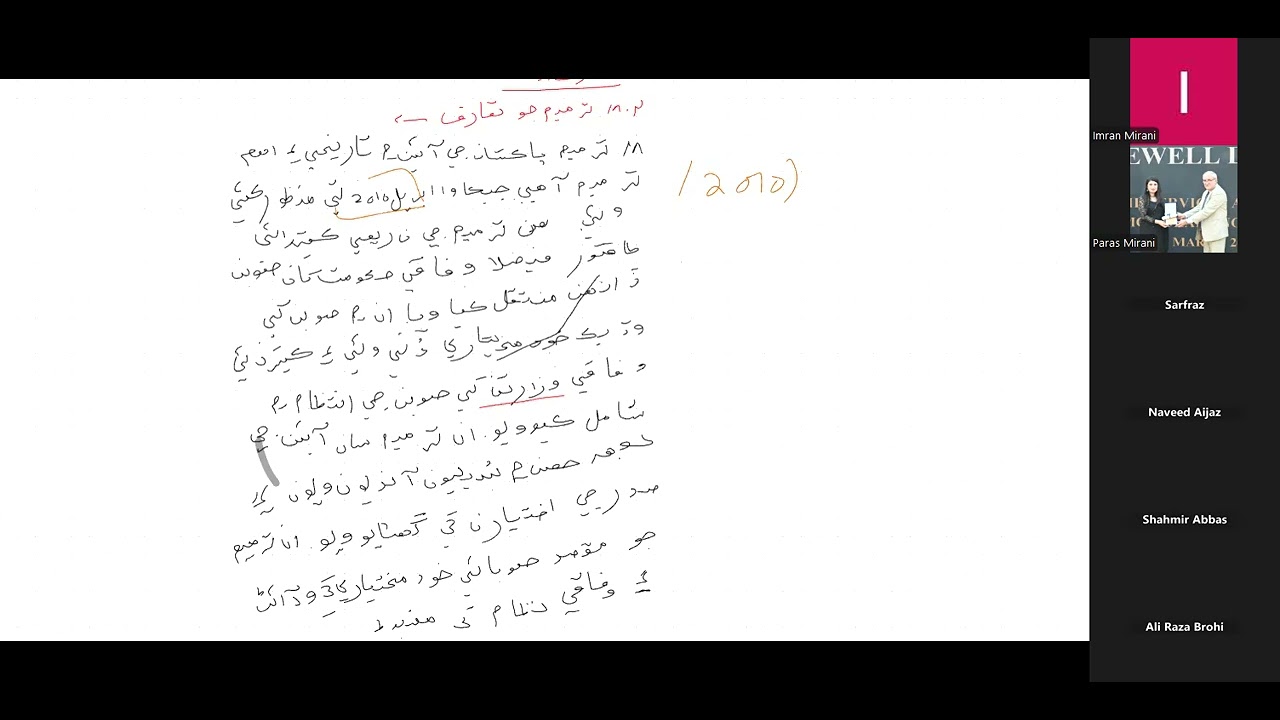 18 ترميم جو تعارف
18 ترميم پاڪستان جي آئين ۾ تاريخي ۽ اهم
ترميم آهي جيڪا 11 اپريل 2010 تي منظور ڪئي
وئي هن ترميم جي ذريعي ڪيترائي
طاقتور فيصلا وفاقي حڪومت کان صوبن
ڏانهن منتقل ڪيا ويا ان ۾ صوبن کي
وڌيڪ خودمختياري ڏني وئي ۽ ڪيترن ئي
وفاقي وزارتن کي صوبن جي انتظام ۾
شامل ڪيو ويو. ان ترميم سان آئين جي
ڪجهه حصن ۾ تبديليون آنديون ويون ۽
صدر جي اختيارن کي گھٽايو ويو. ان ترميم
جو مقصد صوبائي خود مختياري کي وڌائڻ
۽ وفاقي نظام کي مضبوط
(2010)
I
Imran Mirani
EWELL D
MAR
Paras Mirani
Sarfraz
Naveed Aijaz
Shahmir Abbas
Ali Raza Brohi